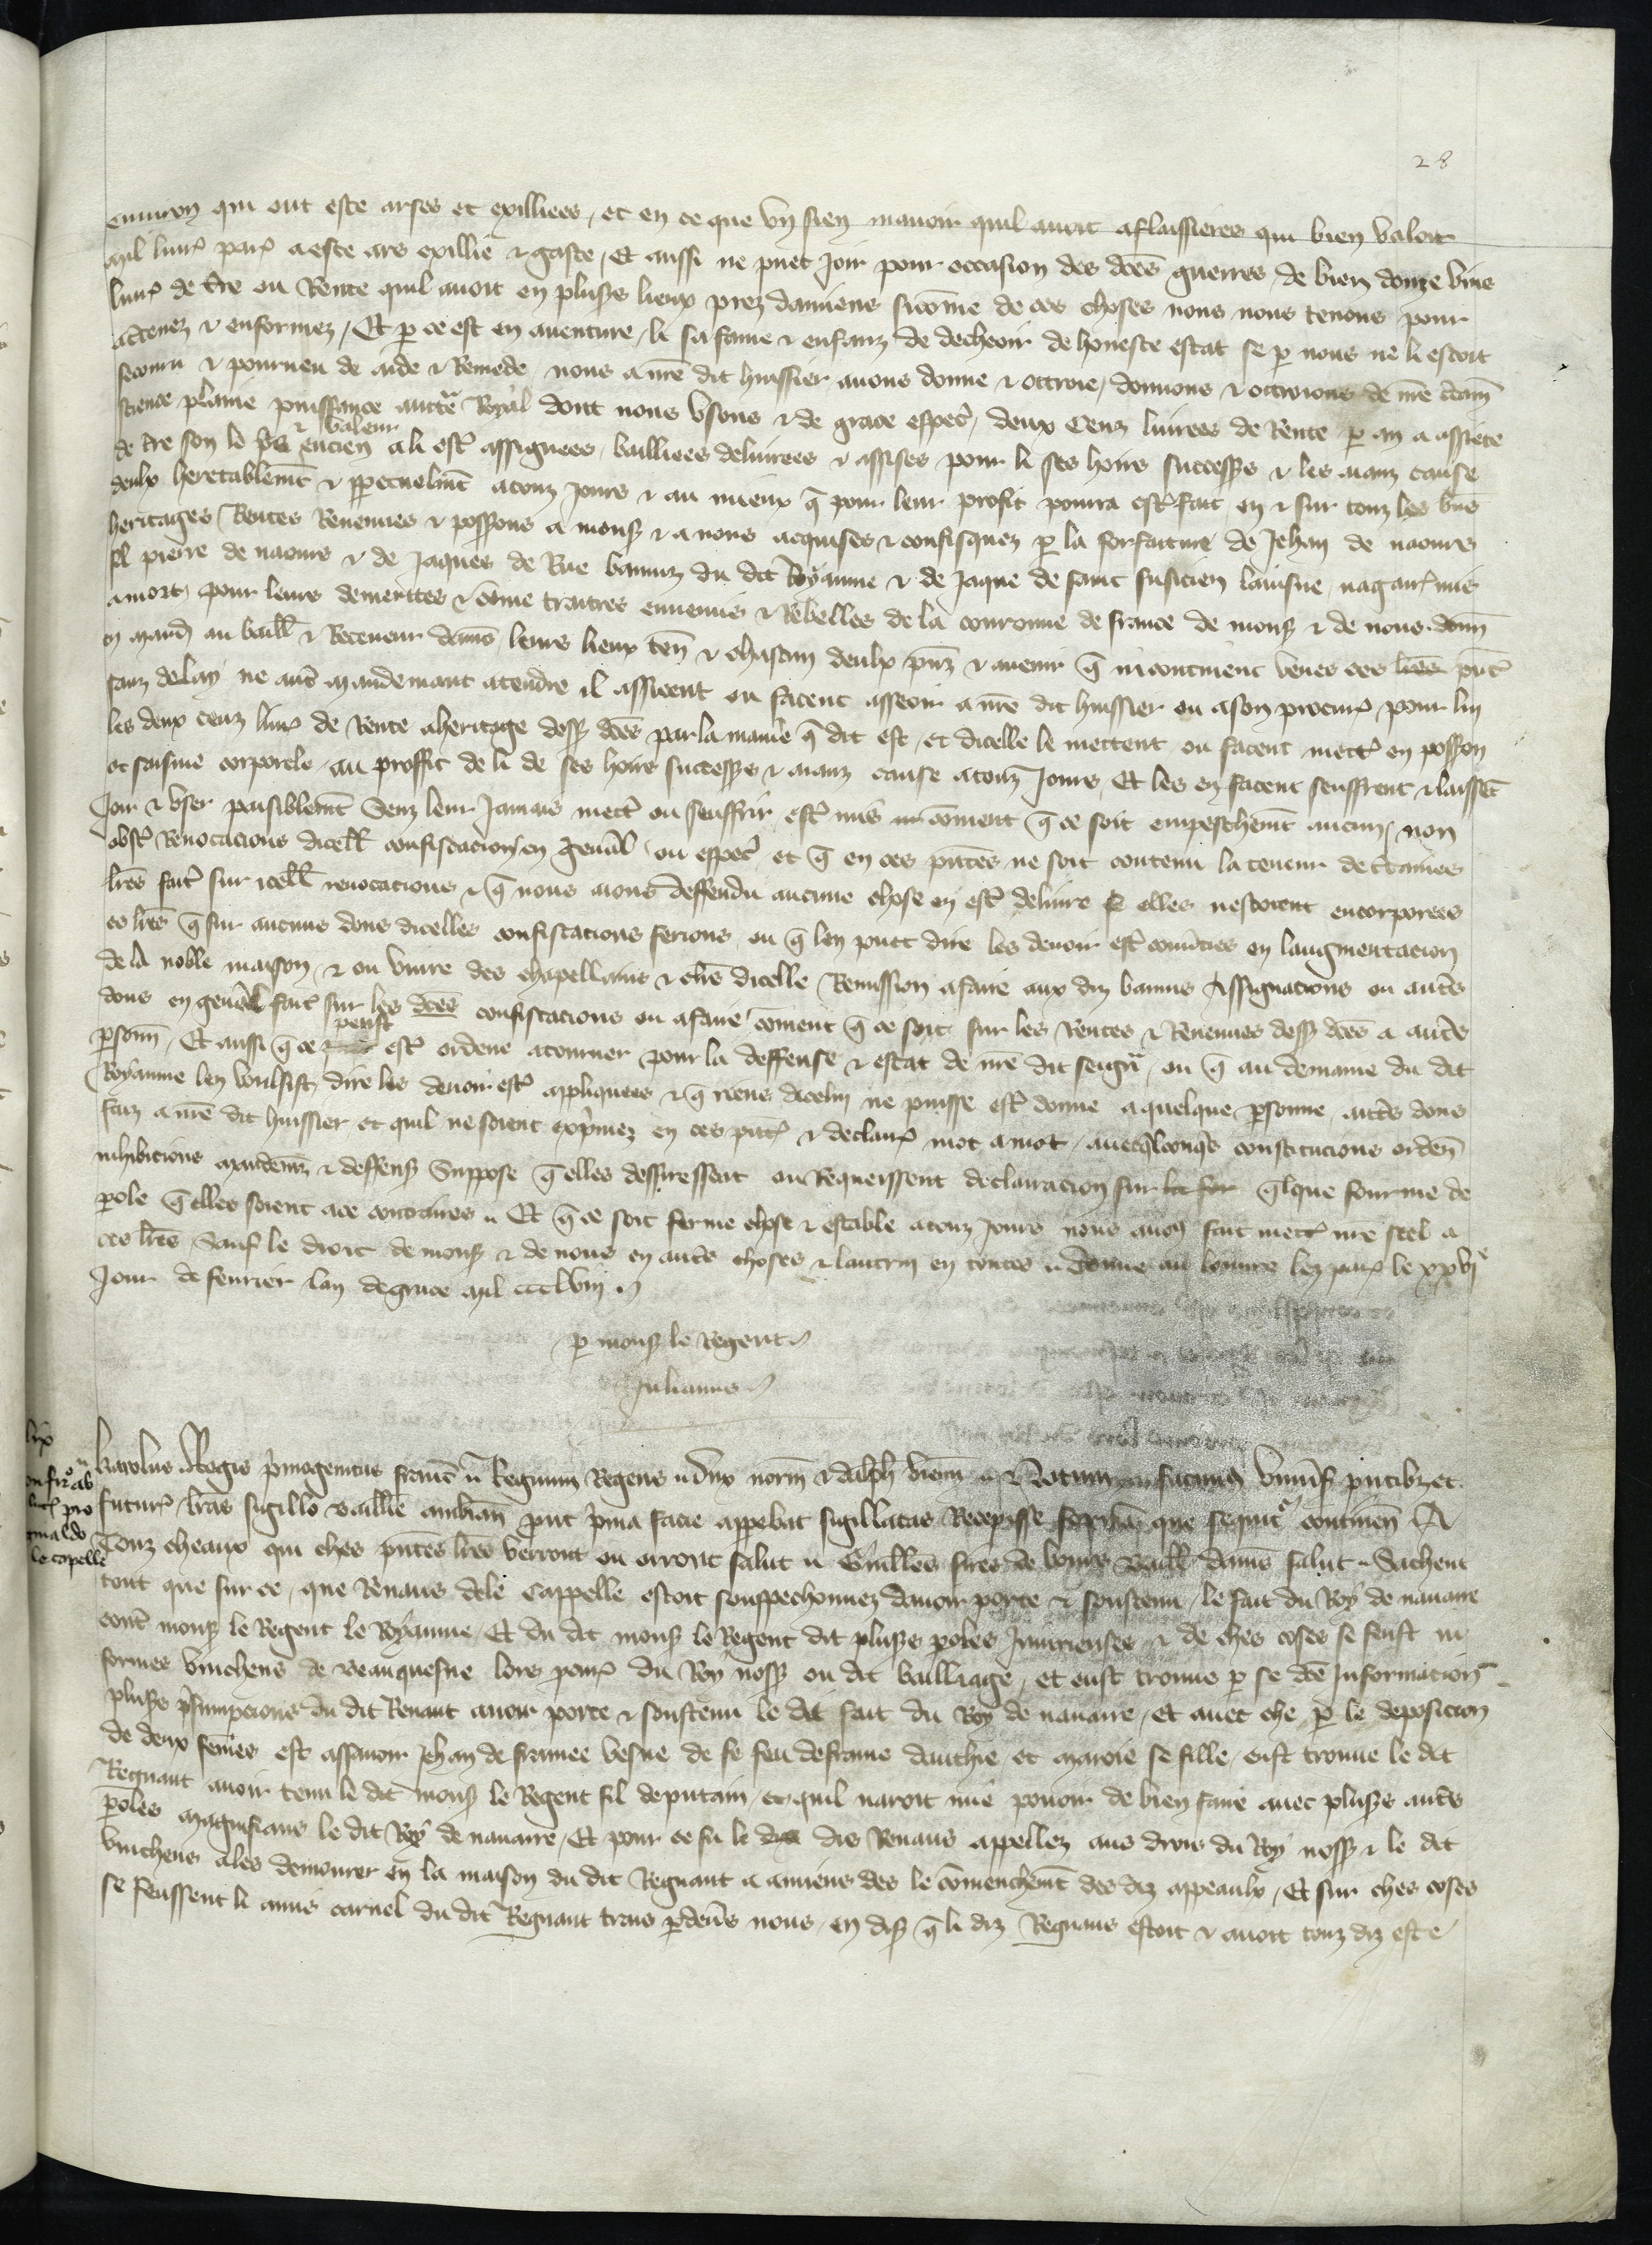 28
environ qui ont este arses et exilliees, et en ce que un sien manoir quil avoit aflaissieres qui bien valoit
mil livr' par' a este ars exillie & gaste, Et aussi ne puet joir pour occasion des dc̄es guerres de bien douze vins
livr' de t̄re ou Rente quil avoit en pluss̄s lieux prez damiens sicōme de ces choses nous nous tenons pour
actenez & enformez, Et p̱ ce est en aventure, li sa fame & enfanz de decheoir de honeste estat se p̱ nous ne li estoit
secouru & pourveu de aide & Remede, nous a nr̄e dit huissier avons donne & ottroie, donnons & ottroions de nr̄e c̄taine
science plaine puissance auct̄e Royal dont nous usons & de grace esp̄ec', deux Cenz livrees de Rente p̱ an a assiete
& valeur
de t̄re son le pris encien a li estr' assignees, bailliees delivrees & assises pour li ses hoirs success̄s & les aianz cause
deulx heretablemt̄ & p̱petuelmt̄ a touz jours & au mieux q̄ pour leur profit pourra estr' fait, en & sur touz les biens
heritages Rentes Revenues & poss̄ons a mons̄ & a nous acquises & confisquez p̱ la forfaiture de Jehan de naours
fil pierre de naours & de Jaques de Rue banniz du dit Royaume & de Jaque de saint fuscien laisne, nagair' mis
a mort, pour leurs demerites & cōme traitres ennemis & Rebelles de la couronne de france de mons̄ & de nous. donn̄
en mand' au baill' & Receveur damiēs leurs lieux ten̄ & chascun deulx pn̄z & avenir q̄ incontinent veues ces lr̄es pn̄t'
sanz delay ne autr' mandemant atendre il assieent ou facent asseoir a nr̄e dit huissier ou a son procur' pour lui
les deux cenz livr' de Rente a heritage dess̄ dc̄es par la maniē q̄ dit est, et dicelle le mettent ou facent mettr' en poss̄on
et saisine corporele, au proffit de li de ses hoirs success̄s & aianz cause a touz Jours, Et les en facent seuffrent & laissēt
Joir & user paisiblemt̄ Senz leur jamais mectr' ou seuffrir estr' mis cōment q̄ ce soit empeschemt̄ aucun, non
obst' Revocacions dicell' confiscacion en gen̄al ou esp̄ec', et q̄ en ces pn̄tes ne soit contenu la teneur de c̄taines
lr̄es fait' sur icell' revocacions & q̄ nous aions deffendu aucune chose en estr' delivre se elles nestoient encorporees
es lr̄es q̄ sur aucuns dons dicelles confiscations ferions, ou q̄ len puet dire les devoir estr' conv̄ties en laugmentacion
de la noble maison, & ou vivre des chapellains & clrs̄ dicelle Remission a faire aux diz bannis Assignacions ou autr̄s
dons en gen̄al fait' sur les dc̄es confiscacions ou a faire cōment q̄ ce soit sur les Rentes & Revenues dess̄ dc̄es a autr̄s
peust
p̱sonn', Et aussi q̄ ce estr' ordene a tourner pour la deffense & estat de nr̄e dit seign̄r, ou q̄ au demaine du dit
Royaume len voulsist dire les devoir estr' appliquees & q̄ riens dicelui ne puisse estr' donne a quelque p̱sonne, autr̄s dons
faiz a nr̄e dit huissier et quil ne soient exp̄mez en ces pn̄t' & declair' mot a mot, avecq̄lconq̄s constitucions orden̄
inhibicions mandemz̄ & deffens̄ Suppose q̄ elles desirassent ou Requeissent declaracion sur la for q̄lque fourme de
p̱ole q̄ elles soient a ce contraires. Et q̄ ce soit ferme chose & estable a touz Jours nous avon̄ fait mettr' nr̄e seel a
ces lr̄es, Sauf le droit de mons̄ & de nous en autr̄s choses & lautrui en toutes. donne au louvre lez par' le xxvie
Jour de fevrier lan de grace mil ccclviij.
p̱ mons̄ le Regent.
Julianus.
Karolus Regis p̄mogenitus franc' Regnum Regens dux norm̄ & dalph' vienn̄ Notum facimus Univ̄s' pn̄tibz et
futur', lr̄as sigillo baillie ambian̄ put p̄ma facie app̱ebat sigillatas Recepisse formam que sequit' continen̄ A
Touz cheaux qui ches pn̄tes lr̄es verront ou orront salut. Guill'es sires de bours baill' damiēs salut. Sachent
tout que sur ce, que Renaus de le Cappelle estoit souspechonnez davoir porte & soustenu, le fait du Roy de navarre
contr̄ mons̄ le Regent le Royaume, Et du dit mons̄ le Regent dit pluss̄s p̱oles Injurieuses & de ches coses se feust in
formes vinchens de Beauquesne lors procur' du Roy noss̄ ou dit bailliage, et eust trouve p̱ se dc̄e Informacion
pluss̄s p̄sumpcions du dit Renaut avoir porte & soustenu le dit fait du Roy de navarre, et avec che p̱ le deposicion
de deux fem̄es est assavoir Jehan de framee vesve de feu deframe dauthie et maroie se fille, eust trouve le dit
Regnaut avoir tenu le dit mons̄ le Regent fil de putain, et quil naroit mie povoir de bien faire avec pluss̄s autr̄s
p̱oles magnifians le dit Roy de navarre, Et pour ce fu li dis Renaus appellez aus drois du Roy noss̄ & le dit
vinchens ales demourer en la maison du dit Regnaut a amiens des le cōmenchemt̄ des diz appeaulx, Et sur ches coses
se feussent li amis carnel du dit Regnaut trais p̱devs̄ nous, en dis̄ q̄ li diz Regnaus estoit & avoit touz diz este
lix
onfir̄ab
litt̄ pro
ginaldo
le capelle